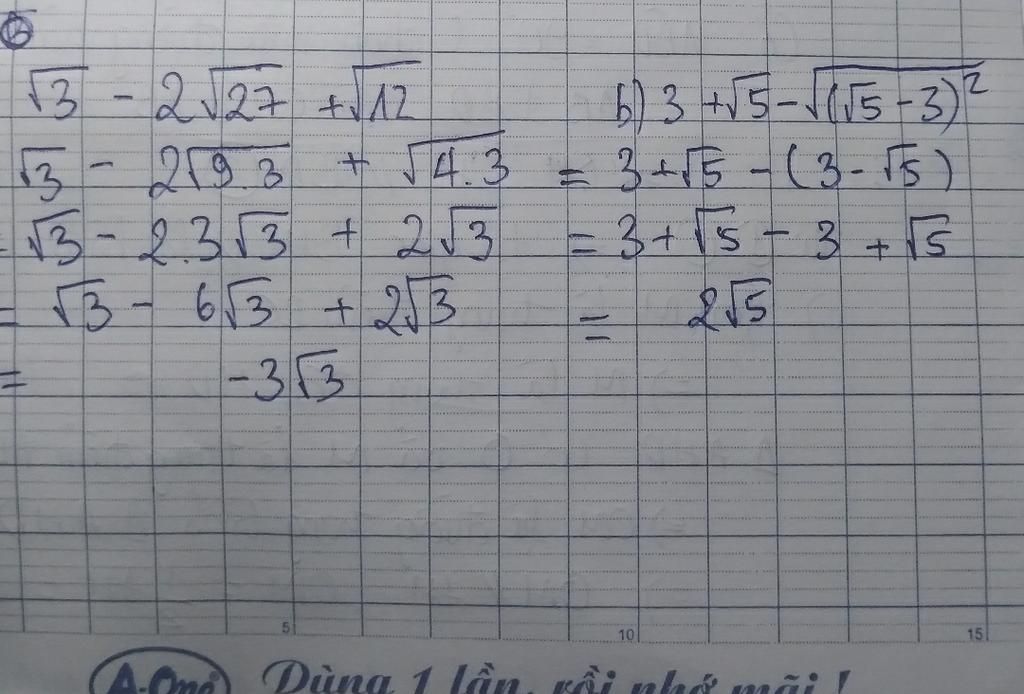 √3 - 2√27 + √12
√3 - 2√9.3 + √4.3
= √3 - 2.3√3 + 2√3
= √3 - 6√3 + 2√3
= -3√3
b) 3 + √5 - √(√5 - 3)²
= 3 + √5 - (3 - √5)
= 3 + √5 - 3 + √5
= 2√5
5 10 15
A-One Dùng 1 lần, rồi nhớ mãi !